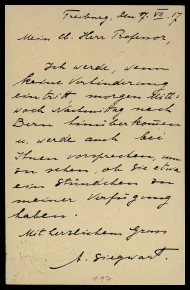 Freiburg, den 17. VII. 17
Mein l. Herr Professor,
Ich werde, wenn
keine Verhinderung
eintritt morgen Mitt-
woch Nachmittag nach
Bern hinüberkommen
u. werde auch bei
Ihnen vorsprechen, um
zu sehen, ob Sie etwa
ein Stündchen zu
meiner Verfügung
haben.
Mit herzlichem Gruss
A. Siegwart.